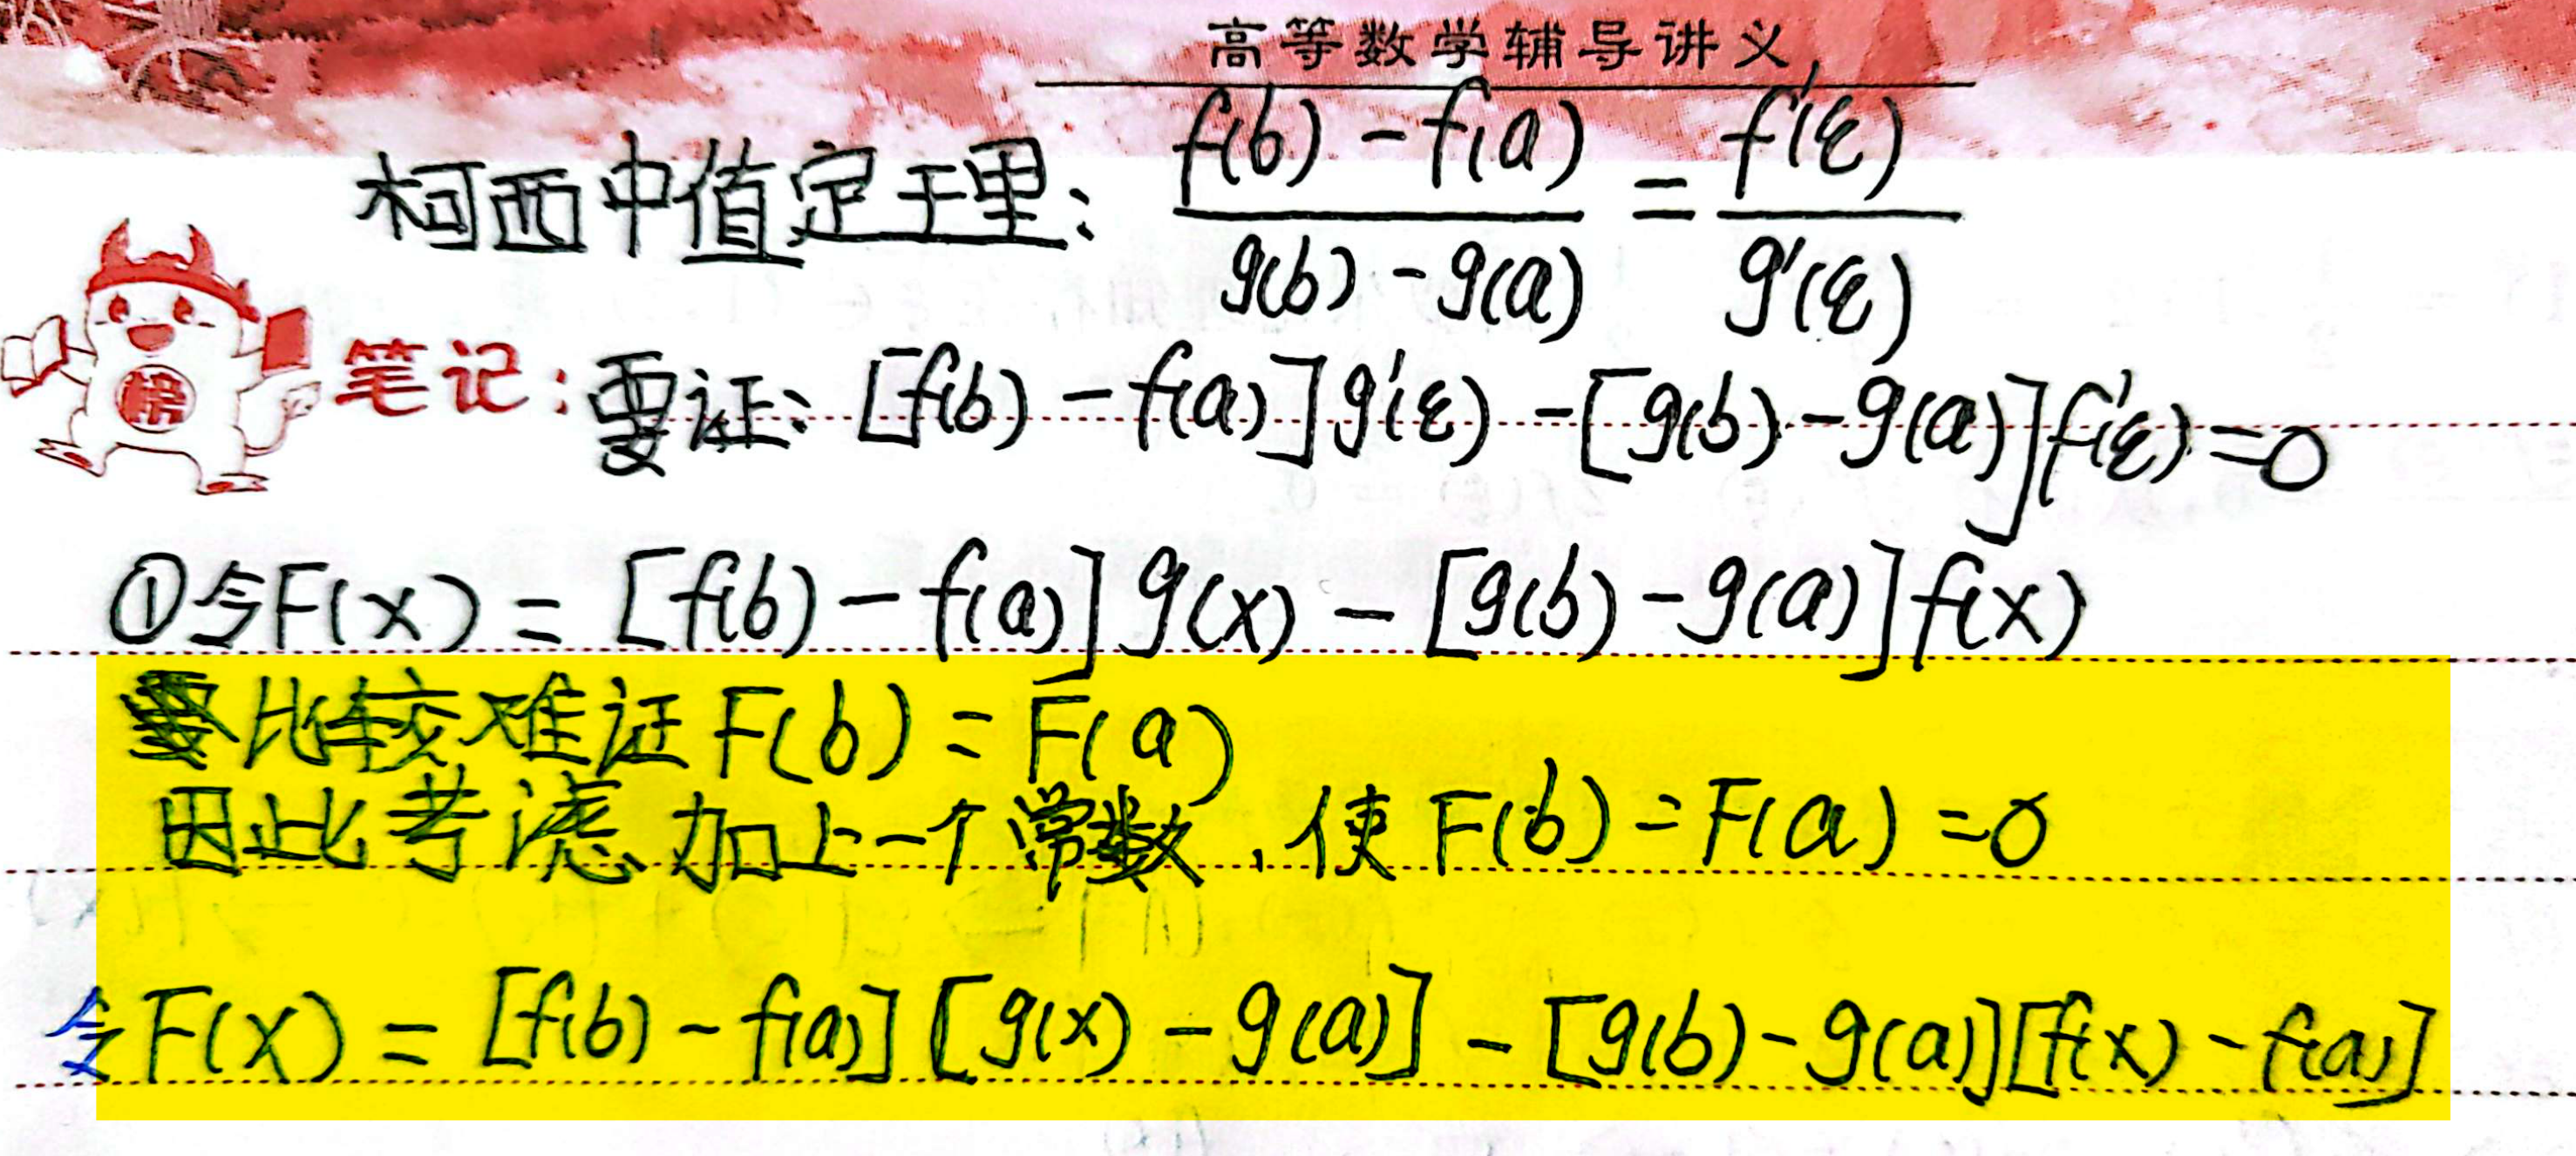 高等数学辅导讲义
柯西中值定理: \frac{f(b)-f(a)}{g(b)-g(a)} = \frac{f'(ξ)}{g'(ξ)}
榜
笔记: 要证: [f(b)-f(a)]g'(ξ)-[g(b)-g(a)]f'(ξ)=0
①令F(x)=[f(b)-f(a)]g(x)-[g(b)-g(a)]f(x)
比较难证F(b)=F(a)
因此考虑加上一个常数,使F(b)=F(a)=0
令F(x)=[f(b)-f(a)][g(x)-g(a)]-[g(b)-g(a)][f(x)-f(a)]